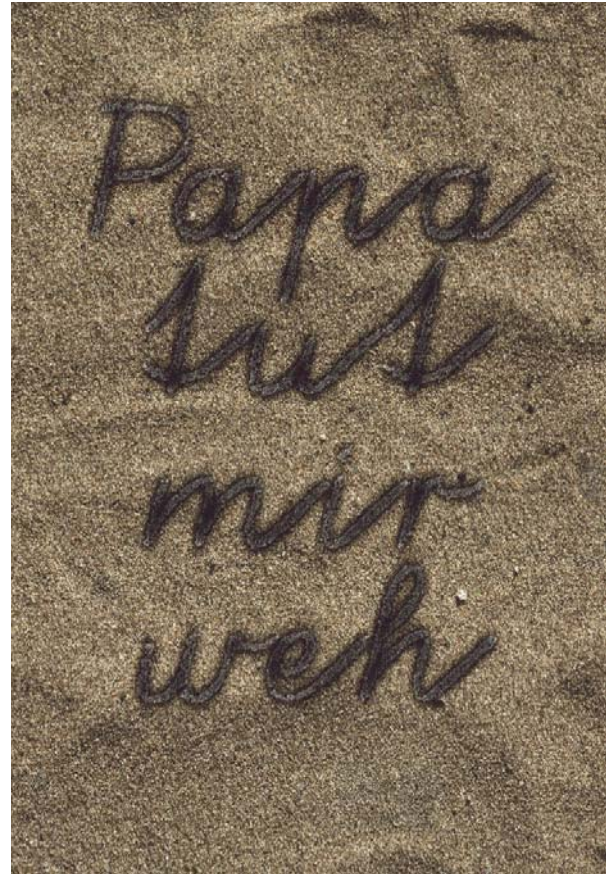 Papa
tut
mir
weh